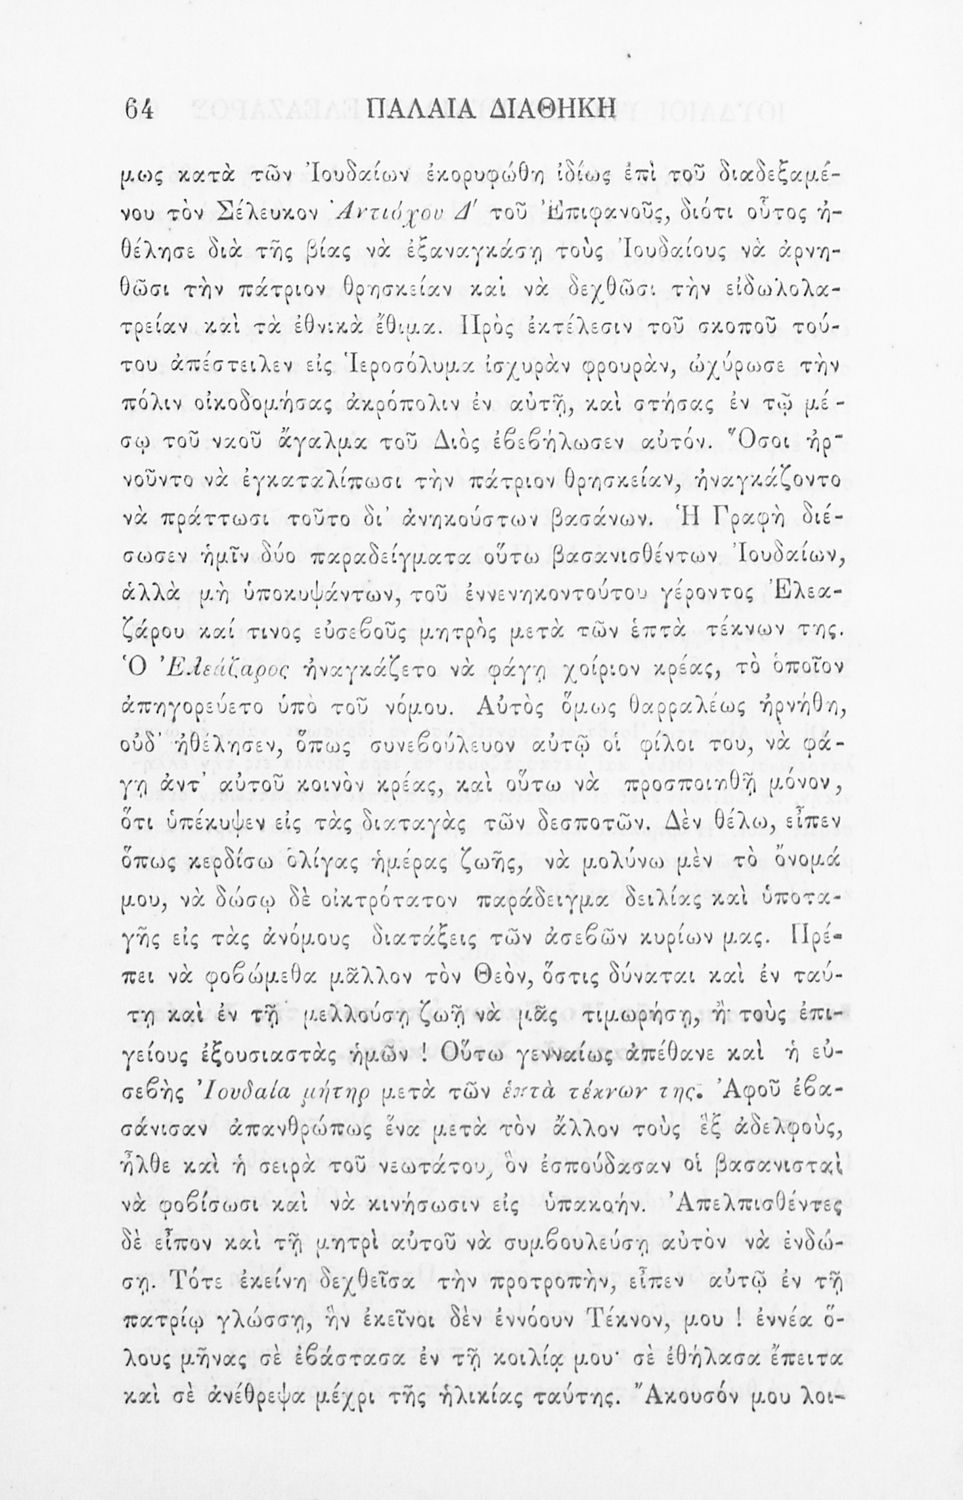 64 ΠΑΛΑΙΑ ΔΙΑΘΗΚΗ
μως κατὰ τῶν Ἰουδαίων ἐκορυφώθη ἰδίως ἐπὶ τοῦ διαδεξαμέ-
νου τὸν Σέλευκον Ἀντιόχου Δ′ τοῦ Ἐπιφανοῦς, διότι οὗτος ἠ-
θέλησε διὰ τῆς βίας νὰ ἐξαναγκάσῃ τοὺς Ἰουδαίους νὰ ἀρνη-
θῶσι τὴν πάτριον θρησκείαν καὶ νὰ δεχθῶσι τὴν εἰδωλολα-
τρείαν καὶ τὰ ἐθνικὰ ἔθιμα. Πρὸς ἐκτέλεσιν τοῦ σκοποῦ τού-
του ἀπέστειλεν εἰς Ἱεροσόλυμα ἰσχυρὰν φρουρὰν, ὠχύρωσε τὴν
πόλιν οἰκοδομήσας ἀκρόπολιν ἐν αὐτῇ, καὶ στήσας ἐν τῷ μέ-
σῳ τοῦ ναοῦ ἄγαλμα τοῦ Διὸς ἐβεβήλωσεν αὐτόν. Ὅσοι ἠρ-
νοῦντο νὰ ἐγκαταλίπωσι τὴν πάτριον θρησκείαν, ἠναγκάζοντο
νὰ πράττωσι τοῦτο δι' ἀνηκούστων βασάνων. Ἡ Γραφὴ διέ-
σωσεν ἡμῖν δύο παραδείγματα οὕτω βασανισθέντων Ἰουδαίων,
ἀλλὰ μὴ ὑποκυψάντων, τοῦ ἐννενηκοντούτου γέροντος Ἐλεα-
ζάρου καί τινος εὐσεβοῦς μητρὸς μετὰ τῶν ἑπτὰ τέκνων της.
Ὁ Ἐλεάζαρος ἠναγκάζετο νὰ φάγῃ χοίριον κρέας, τὸ ὁποῖον
ἀπηγορεύετο ὑπὸ τοῦ νόμου. Αὐτὸς ὅμως θαρραλέως ἠρνήθη,
οὐδ' ἠθέλησεν, ὅπως συνεβούλευον αὐτῷ οἱ φίλοι του, νὰ φά-
γῃ ἀντ' αὐτοῦ κοινὸν κρέας, καὶ οὕτω νὰ προσποιηθῇ μόνον,
ὅτι ὑπέκυψεν εἰς τὰς διαταγὰς τῶν δεσποτῶν. Δὲν θέλω, εἶπεν
ὅπως κερδίσω ὀλίγας ἡμέρας ζωῆς, νὰ μολύνω μὲν τὸ ὄνομά
μου, νὰ δώσῳ δὲ οἰκτρότατον παράδειγμα δειλίας καὶ ὑποτα-
γῆς εἰς τὰς ἀνόμους διατάξεις τῶν ἀσεβῶν κυρίων μας. Πρέ-
πει νὰ φοβώμεθα μᾶλλον τὸν Θεὸν, ὅστις δύναται καὶ ἐν ταύ-
τῃ καὶ ἐν τῇ μελλούσῃ ζωῇ νὰ μᾶς τιμωρήσῃ, ἢ τοὺς ἐπι-
γείους ἐξουσιαστὰς ἡμῶν ! Οὕτω γενναίως ἀπέθανε καὶ ἡ εὐ-
σεβὴς Ἰουδαία μήτηρ μετὰ τῶν ἑπτὰ τέκνων της. Ἀφοῦ ἐβα-
σάνισαν ἀπανθρώπως ἕνα μετὰ τὸν ἄλλον τοὺς ἓξ ἀδελφοὺς,
ἦλθε καὶ ἡ σειρὰ τοῦ νεωτάτου, ὃν ἐσπούδασαν οἱ βασανισταὶ
νὰ φοβίσωσι καὶ νὰ κινήσωσιν εἰς ὑπακοήν. Ἀπελπισθέντες
δὲ εἶπον καὶ τῇ μητρὶ αὐτοῦ νὰ συμβουλεύσῃ αὐτὸν νὰ ἐνδώ-
σῃ. Τότε ἐκείνη δεχθεῖσα τὴν προτροπὴν, εἶπεν αὐτῷ ἐν τῇ
πατρίῳ γλώσσῃ, ἣν ἐκεῖνοι δὲν ἐννόουν Τέκνον, μου ! ἐννέα ὅ-
λους μῆνας σὲ ἐβάστασα ἐν τῇ κοιλίᾳ μου· σὲ ἐθήλασα ἔπειτα
καὶ σὲ ἀνέθρεψα μέχρι τῆς ἡλικίας ταύτης. Ἄκουσόν μου λοι-